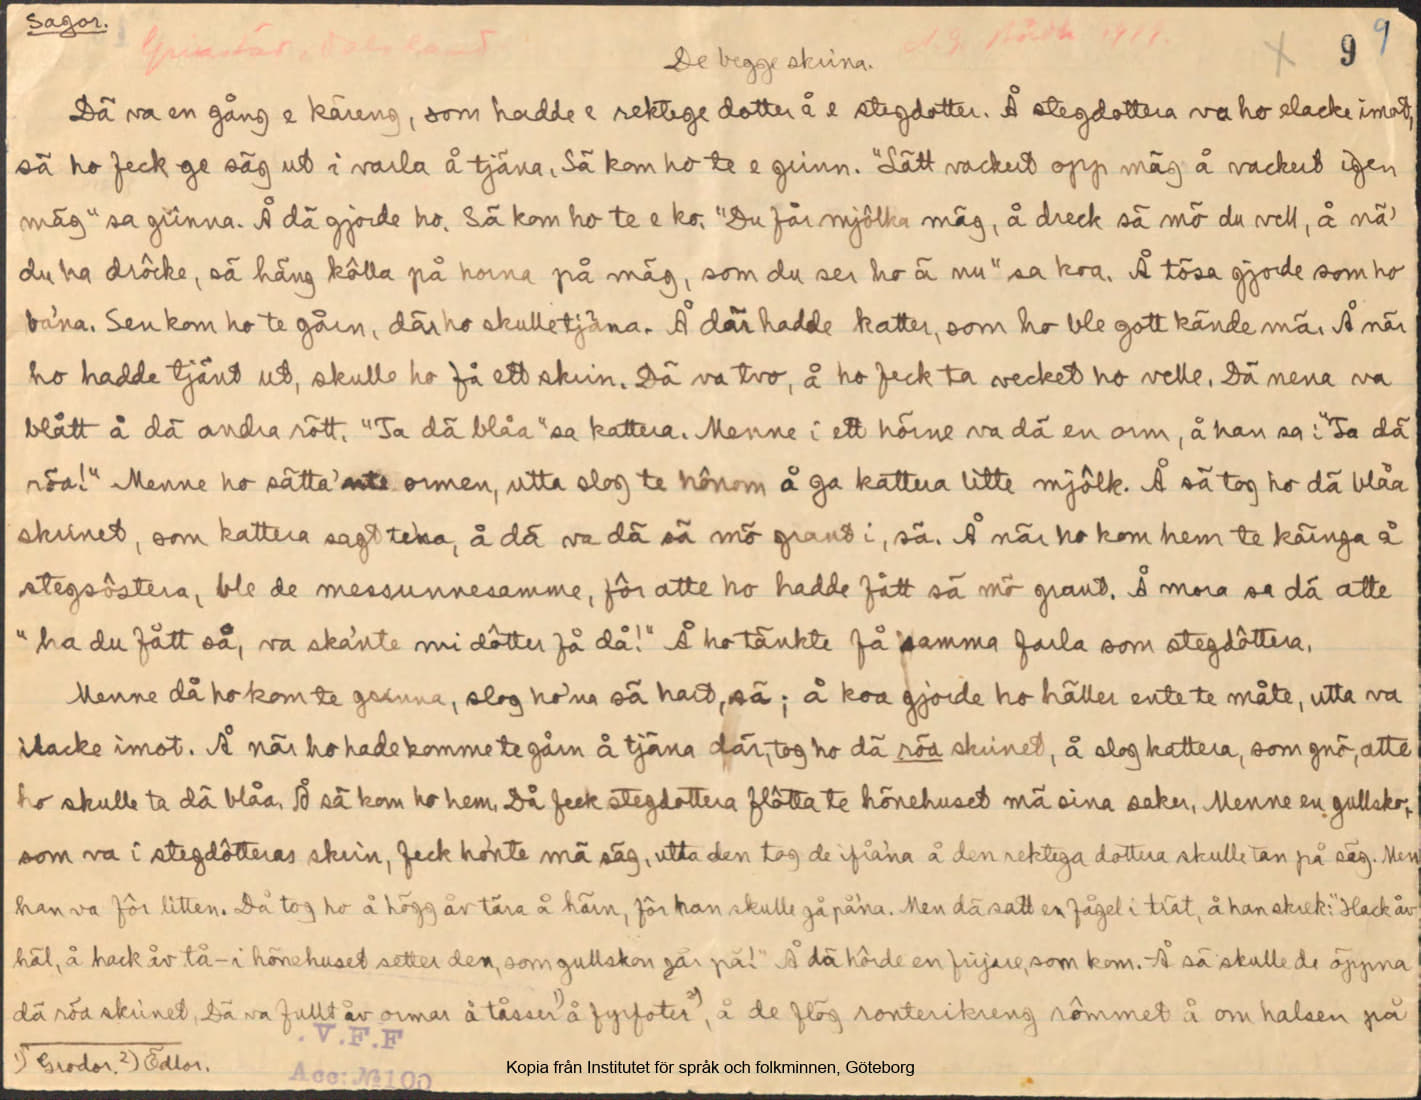 Sagor.
Grinstad, Dalsland
1919.
9 9
De begge skrina.
Dä va en gång e käreng, som hadde e rektege dotter å e stegdotter. Å stegdottera va ho elacke imot,
sä ho feck ge säg ut i varla å tjäna. Sä kom ho te e grinn. "Lätt vackert opp mäg å vackert igen
mäg" sa grinna. Å dä gjorde ho. Sä kom ho te e ko. "Du får mjôlka mäg, å dreck sä mö du vell, å nä'
du ha drôcke, sä häng kôlla på horna på mäg, som du ser ho ä nu" sa koa. Å tösa gjorde som ho
ba'na. Sen kom ho te gårn, där ho skulle tjäna. Å där hadde katter, som ho ble gott kände mä. Å när
ho hadde tjänt ut, skulle ho få ett skrin. Dä va tvo, å ho feck ta vecket ho velle. Dä nena va
blått å dä andra rött. "Ta dä blåa" sa kattera. Menne i ett hörne va dä en orm, å han sa: "Ta dä
röa!" Menne ho sätta'nte ormen, utta slog te hônom å ga kattera litte mjôlk. Å sä tog ho dä blåa
skrinet, som kattera sagt te'na, å dä va dä sä mö grant i, sä. Å när ho kom hem te käringa å
stegsôstera, ble de messunnesamme, fôr atte ho hadde fått sä mö grant. Å mora sa dä atte
"ha du fått så, va ska'nte mi dôtter få då!" Å ho tänkte få samma farla som stegdôttera.
Menne då ho kom te grinna, slog ho'na sä hart, sä; å koa gjorde ho häller ente te måte, utta va
ilacke imot. Å när ho hade komme te gårn å tjäna där, tog ho dä röa skrinet, å slog kattera, som gnö, atte
ho skulle ta dä blåa. Å sä kom ho hem. Då feck stegdottera flôtta te hönehuset mä sina saker. Menne en gullsko,
som va i stegdôtteras skrin, feck ho'nte mä säg, utta den tog de ifrå'na å den rektega dottera skulle tan på säg. Men
han va fôr litten. Då tog ho å högg åv tåra å härn, fôr han skulle gå på'na. Men dä satt en fågel i trät, å han skrek: "Hack åv
häl, å hack åv tå – i hönehuset setter den, som gullskon går på!" Å dä hôrde en frijare, som kom. Å sä skulle de öppna
dä röa skrinet. Dä va fullt åv ormar å tåsser¹⁾ å fyrfoter²⁾, å de flög ronterikreng rômmet å om halsen på
1) Grodor. 2) Ödlor.
V.F.F
Acc: № 100
Kopia från Institutet för språk och folkminnen, Göteborg